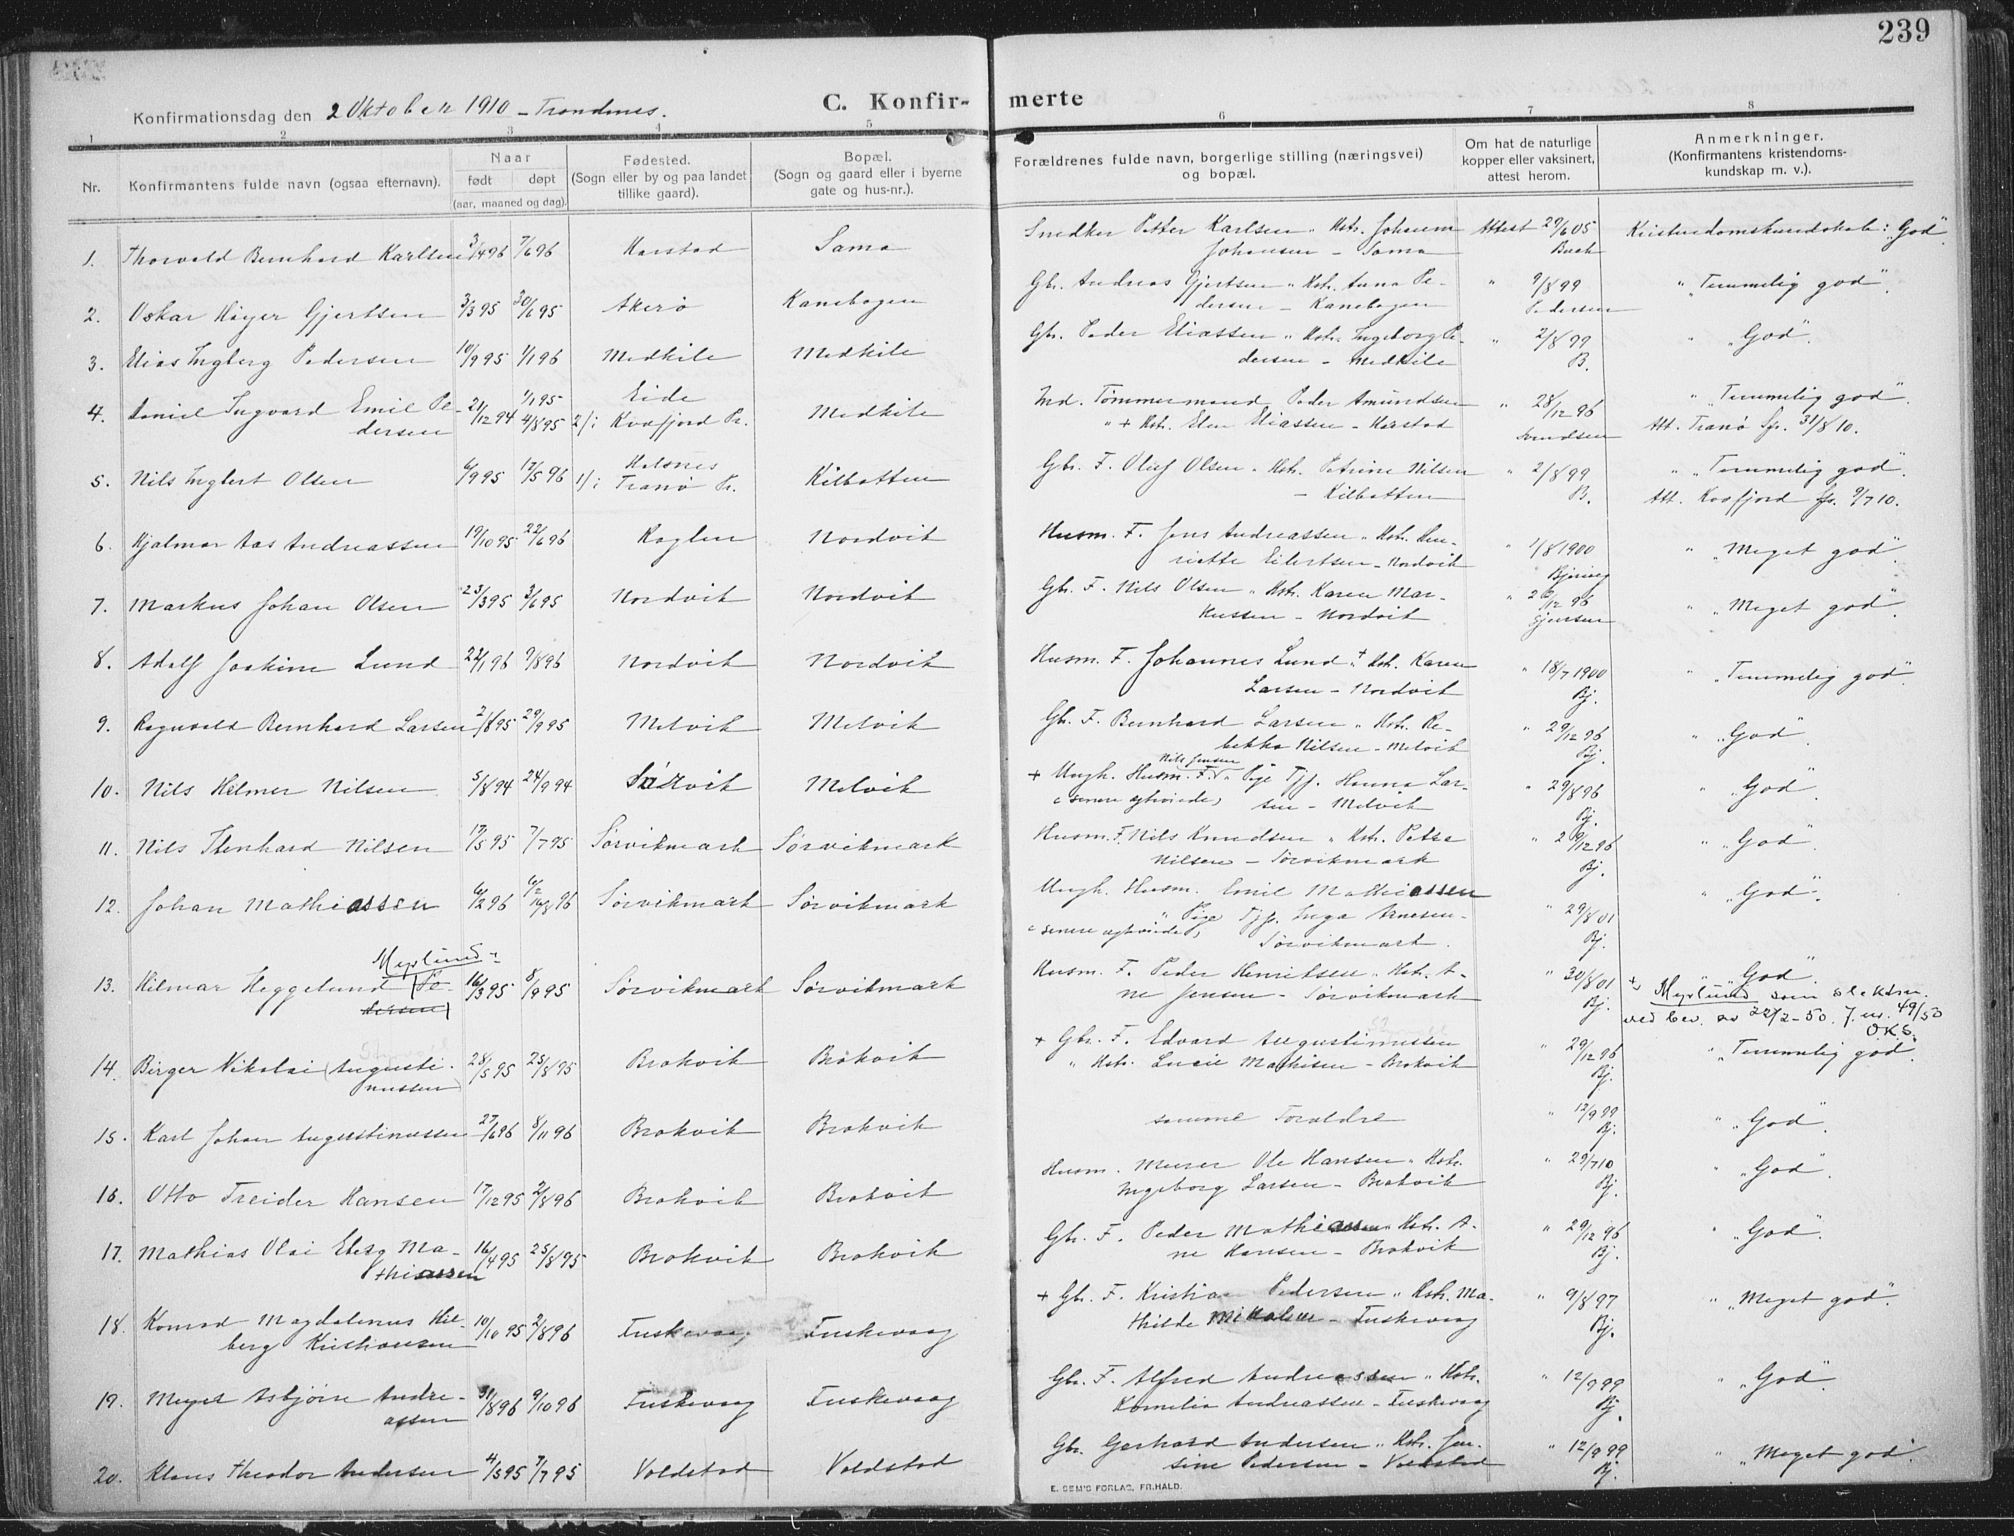 239
Konfirmationsdag den 2 Oktober 1910 - Trondenes.
C. Konfir- merte
1 2 3 4 5 6 7 8
Nr.
Konfirmantens fulde navn (ogsaa efternavn).
Naar
født døpt
(aar, maaned og dag).
Fødested.
(Sogn eller by og paa landet
tillike gaard).
Bopæl.
(Sogn og gaard eller i byerne
gate og hus-nr.).
Forældrenes fulde navn, borgerlige stilling (næringsvei)
og bopæl.
Om hat de naturlige
kopper eller vaksinert,
attest herom.
Anmerkninger.
(Konfirmantens kristendoms-
kundskap m. v.).
1. Thorvald Bernhard Karlsen 3/4 96 7/6 96 Harstad Sama
Snedker Petter Karlsen " Hstr. Johanna
Johansen - Sama
Attest 29/6 05
Buch
Kristendomskundskab: "God".
2. Oskar Høyer Gjertsen 3/3 95 30/6 95 Akerø Kanebogen
Gbr. Andreas Gjertsen " Hstr. Anna Pe-
dersen - Kanebogen
" 9/8 99
Pedersen
" "Temmelig god".
3. Elias Ingberg Pedersen 10/9 95 1/1 96 Medkile Medkile
Gbr. Peder Eliassen " Hstr. Ingeborg Pe-
dersen - Medkile
" 2/8 99
B.
" "God".
4. Daniel Ingvard Emil Pe-
dersen 21/12 94 1/1 95
4/8 95 Eide
2/: Kvæfjord Pr. Medkile
Ind. Tømmermand Peder Amundsen
" + Hstr. Elen Eliassen - Harstad
" 28/12 96
Svendsen
" "Temmelig god".
Att. Tranø Spr. 31/8 10.
5. Nils Inglert Olsen 6/9 95 17/5 96 1/: Tranø Pr. Kilbotten
Gbr. F. Oluf Olsen " Hstr. Petrine Nilsen
- Kilbotten
" 2/8 99
B.
" "Temmelig god".
Att. Kvæfjord Spr. 9/7 10.
6. Hjalmar Aas Andreassen 19/10 95 22/6 96 Røglen Nordvik
Husm. F. Jens Andreassen " Hstr. Hen-
riette Eilertsen - Nordvik
" 1/8 1900
" "Meget god".
7. Markus Johan Olsen 23/3 95 3/6 95 Nordvik Nordvik
Gbr. F. Nils Olsen " Hstr. Karen Mar-
kussen - Nordvik
" 26/12 96
" "Meget god".
8. Adolf Joakim Lund 22/1 96 9/8 96 Nordvik Nordvik
Husm. F. Johannes Lund " + Hstr. Karen
Larsen - Nordvik
" 18/7 1900
Bj.
" "Temmelig god".
9. Ragnvald Bernhard Larsen 2/8 95 29/9 95 Melvik Melvik
Gbr. F. Bernhard Larsen " Hstr. Re-
bekka Nilsen - Melvik
" 29/12 96
Bj.
" "God".
10. Nils Hilmer Nilsen 5/8 94 24/9 94 Sørvik Melvik
Nils Jensen
+ Ungk. Husm. F. " Pige Tjp. Hanna Lar-
(senere egteviede) sen - Melvik
" 29/8 96
Bj.
" "God".
11. Nils Stenhard Nilsen 17/5 95 7/7 95 Sørvikmark Sørvikmark
Husm. F. Nils Knudsen " Hstr. Petra
Nilsen - Sørvikmark
" 29/12 96
Bj.
" "God".
12. Johan Mathiassen 6/2 96 6/2
16/8 96 Sørvikmark Sørvikmark
Ungk. Husm. Emil Mathiassen
" Pige Tjp. Inga Arnesen -
(senere egteviede) Sørvikmark.
" 29/8 01
Bj.
" "God".
Myrlund -
13. Hilmar Heggelund (Pe-
dersen) 16/3 95 8/9 95 Sørvikmark Sørvikmark
Husm. F. Peder Henriksen " Hstr. A-
ne Jensen - Sørvikmark
" 30/8 01
Bj.
"God".
Myrlund som slektsn.
ved bev. av 22/2-50. J.nr. 49/50
O.K.S.
14. Birger Nikolai (Augusti-
nussen) 28/5 95 25/8 95 Brokvik Brokvik
+ Gbr. F. Edvard Augustinussen
" Hstr. Lucie Mathisen - Brokvik
" 29/12 96
Bj.
" "Temmelig god".
15. Karl Johan Augustinussen 27/6 96 8/11 96 Brokvik Brokvik
samme Foraldre
" 12/9 99
Bj.
" "God".
16. Otto Treider Hansen 17/12 95 2/8 96 Brokvik Brokvik
Husm. Murer Ole Hansen " Hstr.
Ingeborg Larsen - Brokvik
" 29/7 10
Bj.
" "God".
17. Mathias Olai Eberg Ma-
thiassen 16/4 95 25/8 95 Brokvik Brokvik
Gbr. F. Peder Mathiassen " Hstr. A-
ne Hansen - Brokvik
" 29/12 96
Bj.
" "God".
18. Konrad Magdalenus Hil-
berg Kristiansen 10/10 95 2/8 96 Fuskevaag Fuskevaag
+ Gbr. F. Kristian Pedersen " Hstr. Ma-
thilde Mikalsen - Fuskevaag
" 9/8 97
Bj.
" "Meget god".
19. Meyer Asbjørn Andre-
assen 31/8 96 9/10 96 Fuskevaag Fuskevaag
Gbr. F. Alfred Andreassen " Hstr.
Kornelia Andreassen - Fuskevaag
" 12/9 99
Bj.
" "God".
20. Klaus Theodor Andersen 4/5 95 7/7 95 Voldstad Voldstad
Gbr. Gerhard Andersen " Hstr. Jen-
sine Pedersen - Voldstad
" 12/9 99
Bj.
" "Meget god".
E. SEM'S FORLAG, FR.HALD.